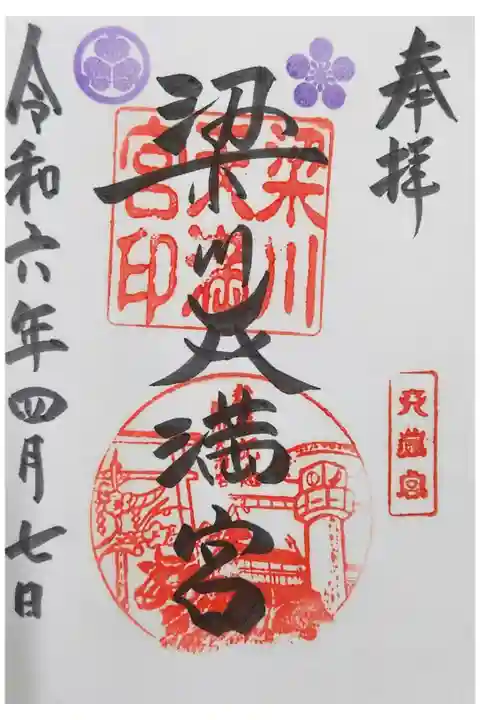 奉拝
梁川天満宮
梁川天満宮印
天満宮
令和六年四月七日